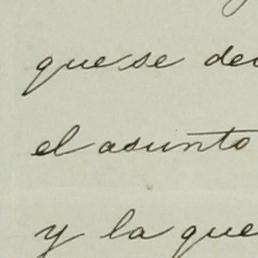 que se de
el asunto
y la que